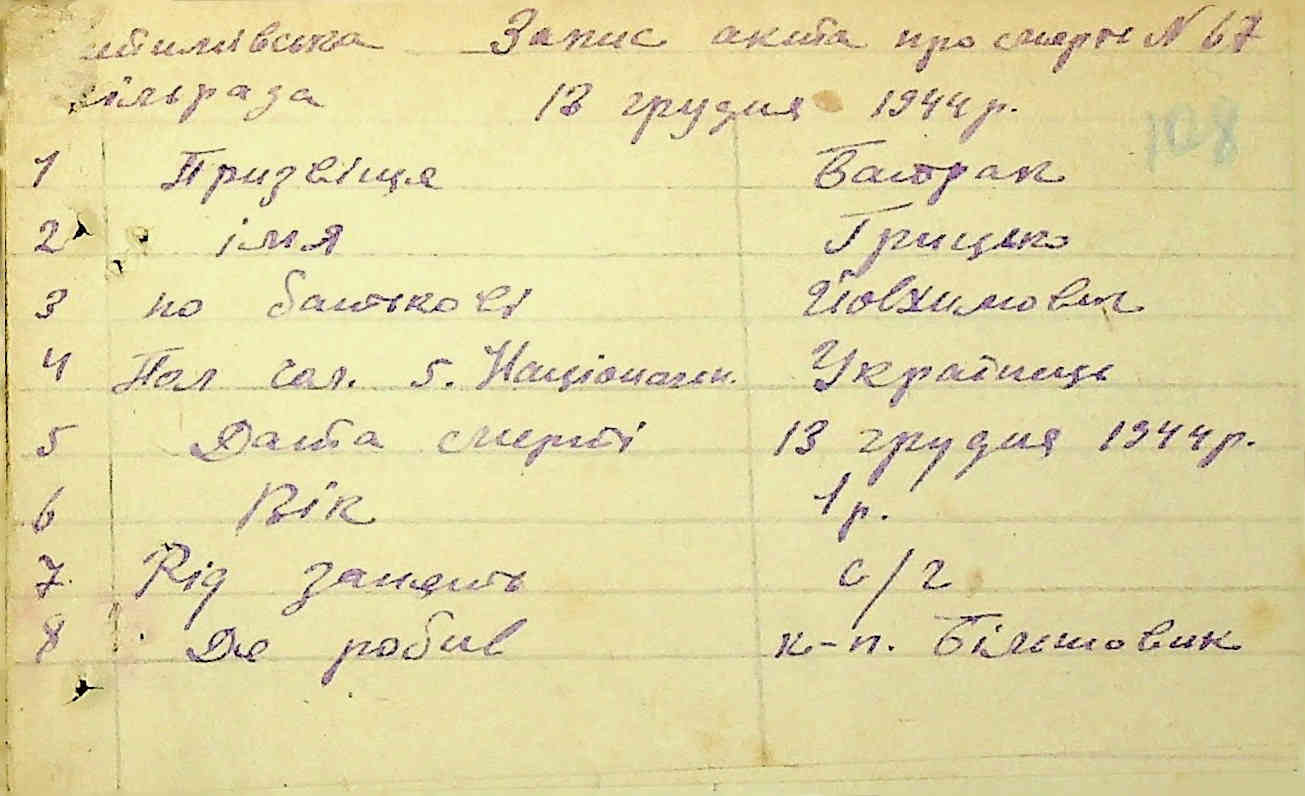 Запис акта про смерть N 67
сільрада 13 грудня 1944 р.
108
1 Призвіще Баторак
2 імя Грицько
3 по батькові Йовхимович
4 Пол чол. 5. Націонали. Українець
5 Дата смерті 13 грудня 1944 р.
6 Вік 1 р.
7. Рід занять с/г
8 Де робив к-п. Більшовик